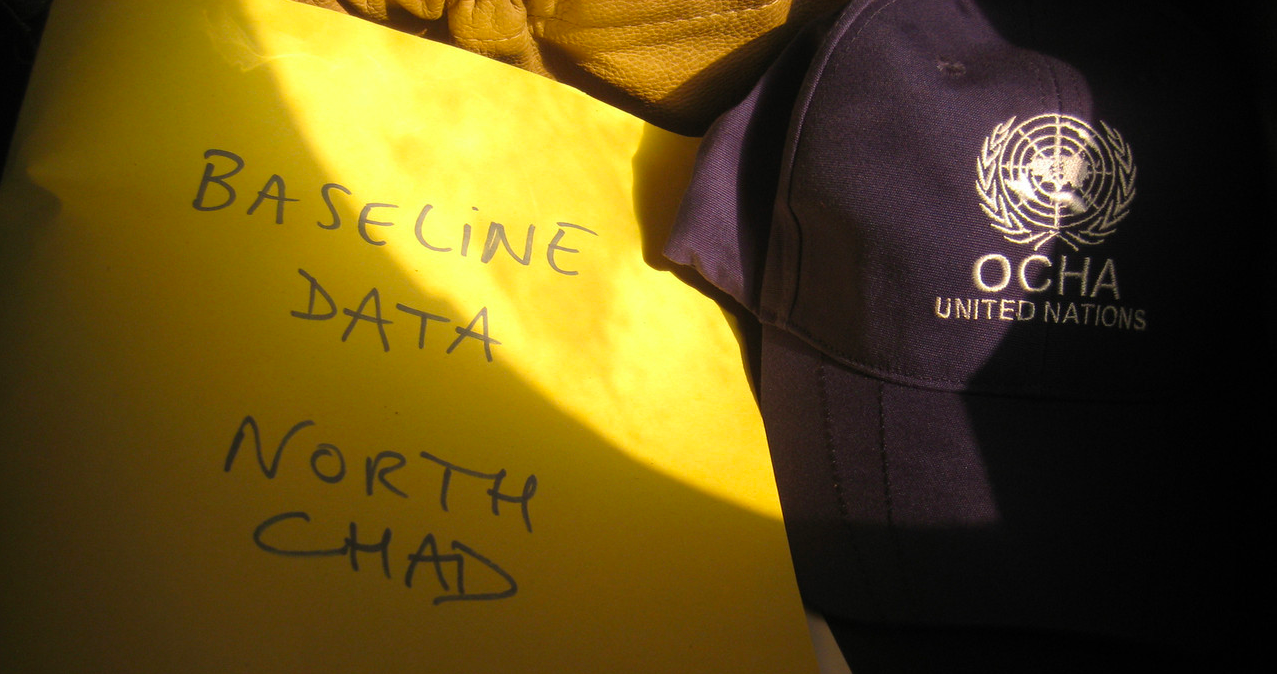 BASELINE
DATA
NORTH
CHAD
OCHA
UNITED NATIONS